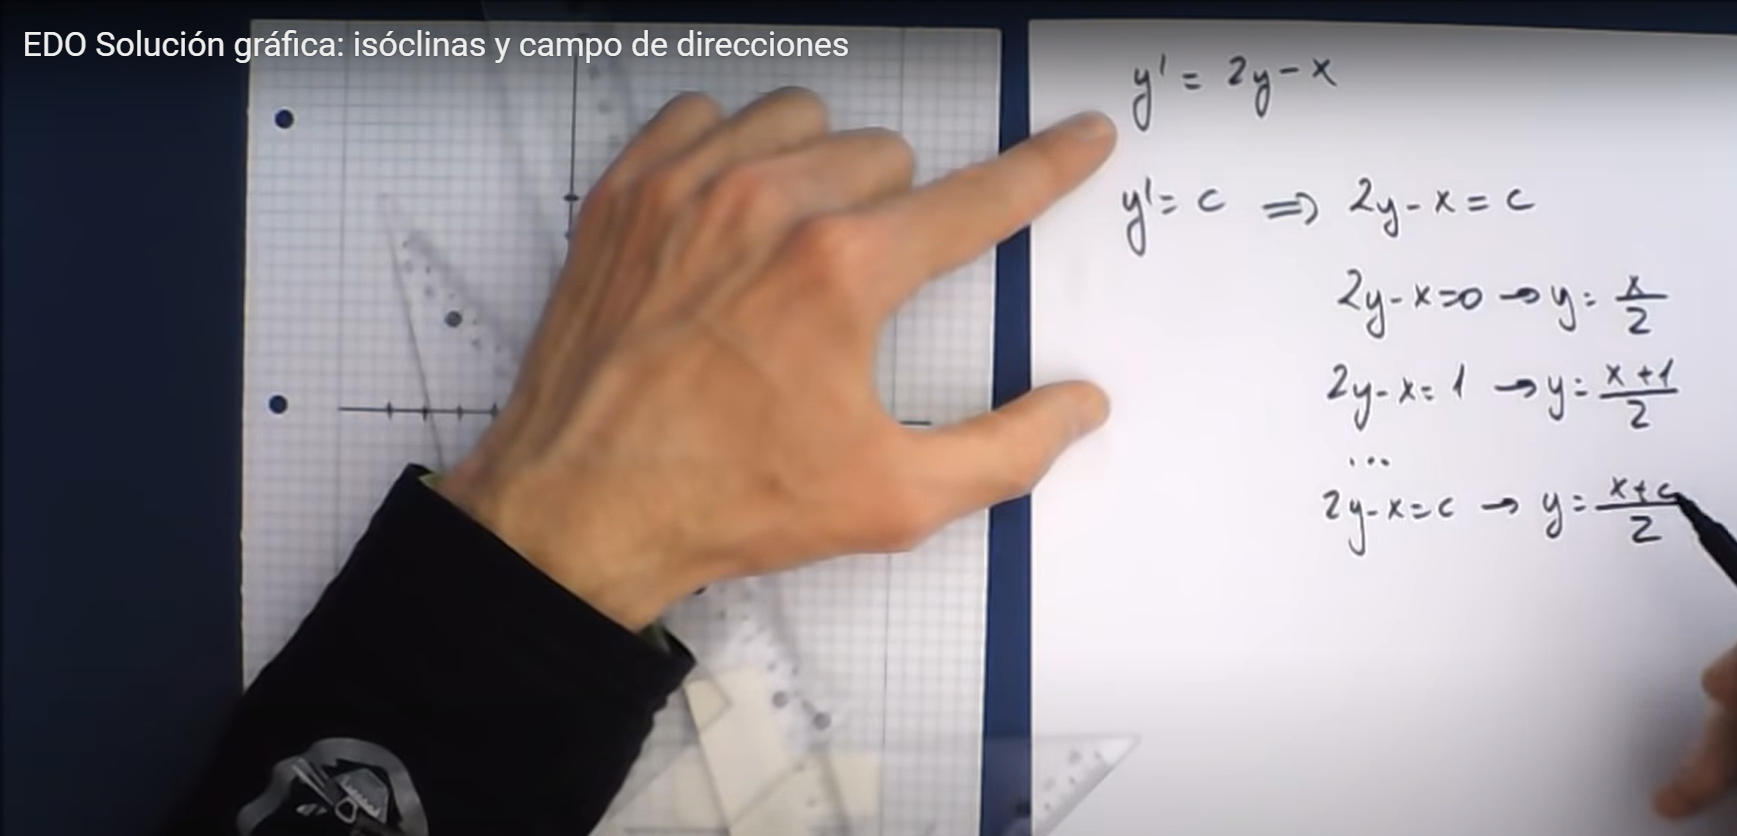 EDO Solución gráfica: isóclinas y campo de direcciones
y' = 2y - x
y' = c ⇒ 2y - x = c
2y - x = 0 → y = x/2
2y - x = 1 → y = (x + 1)/2
...
2y - x = c → y = (x + c)/2